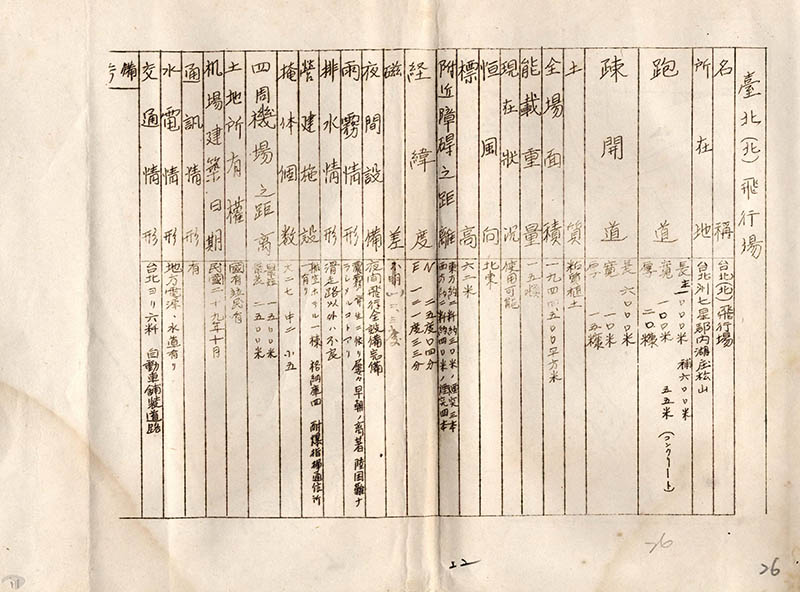 臺北(北)飛行場
名稱 台北(北)飛行場
所在地 台北州七星郡內湖庄松山
跑道 長 主一〇〇〇米 補六〇〇米
寬 一〇〇米 五五米 (コンクリート)
厚 二〇糎
疎開道 長 六〇〇〇米
寬 一〇〇米
厚 一五糎
土質 粘質植土
全場面積 一九四四五〇〇平方米
能載重量 一五噸
現在狀況 使用可能
恒風向 北東
標高 六二米
附近障碍之距離 東方約二粁約三〇米ノ煙突三本
西方約二粁約四〇米ノ煙突四本
経緯度 N 二五度〇四分
E 一二一度三三分
磁差 不明
夜間設備 夜間飛行全設備完備
雨霧情形 早朝ノ
排水情形 滑走路以外ハ不良
營建施設 一棟 格納庫四 耐爆指揮通信所有り
掩体個數 大二七 中二 小五
四周機場之距离 一五〇〇米
二五〇〇米
土地所有權 國有
机場建築日期 民國二十九年十月
通訊情形 有
水電情形 地方電源、水道有り
交通情形 台北ヨリ六粁 自動車舗裝道路
備
22
26
26